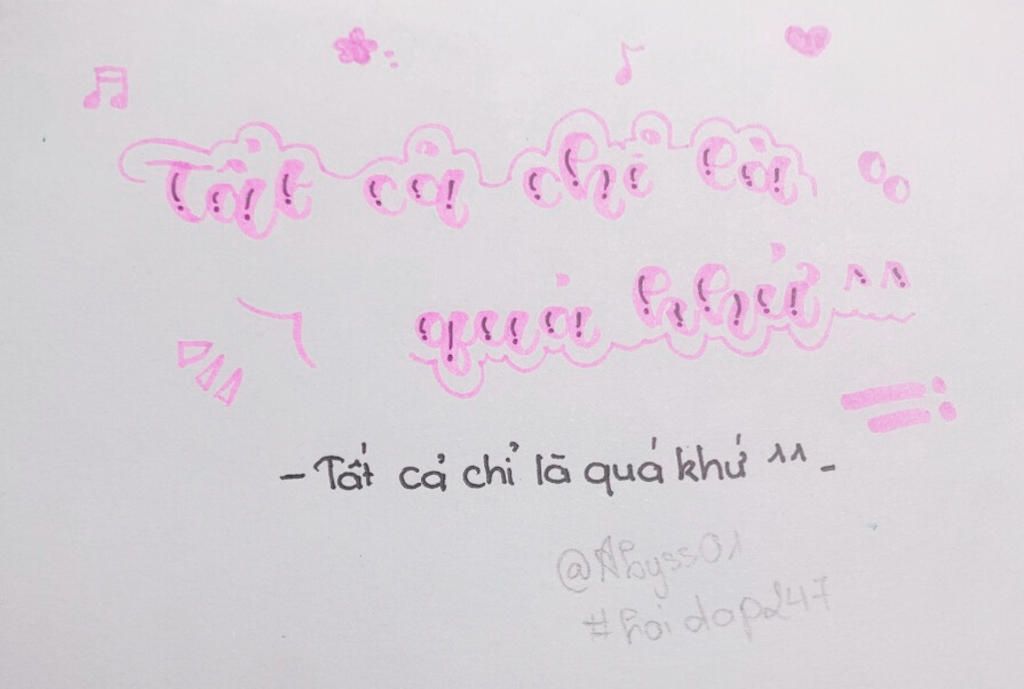 Tất cả chỉ là
quá khứ ^^
- Tất cả chỉ là quá khứ ^^ -
@Abyss01
#hoidap247